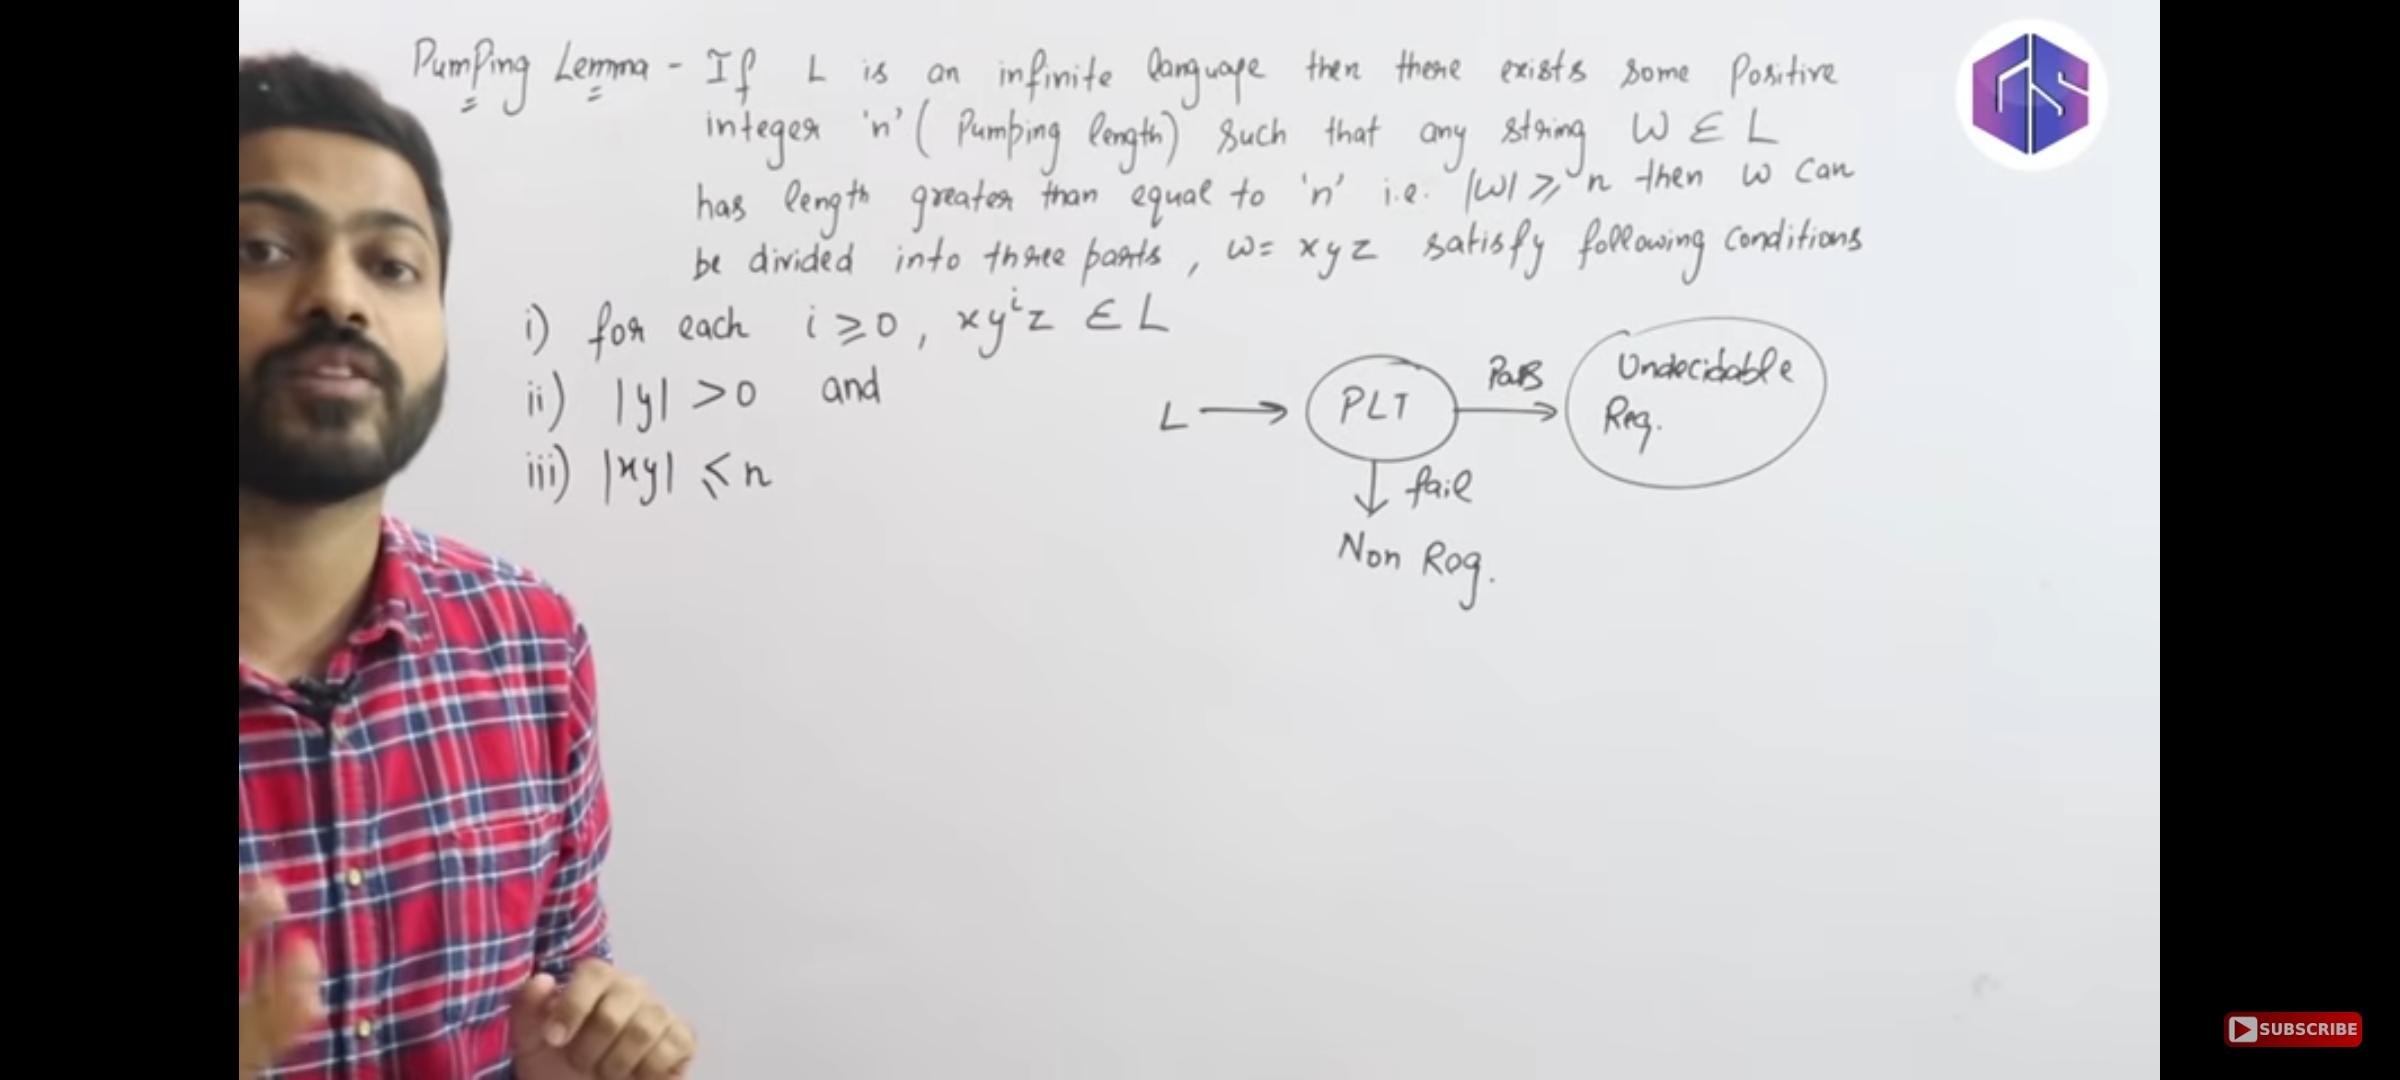 Pumping Lemma - If L is an infinite language then there exists some Positive
integer 'n' ( Pumping length) such that any string W ∈ L
has length greater than equal to 'n' i.e. |W| ⩾ n then w can
be divided into three parts, w= xyz satisfy following conditions
i) for each i ⩾ 0, xyⁱz ∈ L
ii) |y| > 0 and
iii) |xy| ⩽ n
L → PLT Pass Undecidable
Reg.
fail
Non Reg.
GS
SUBSCRIBE